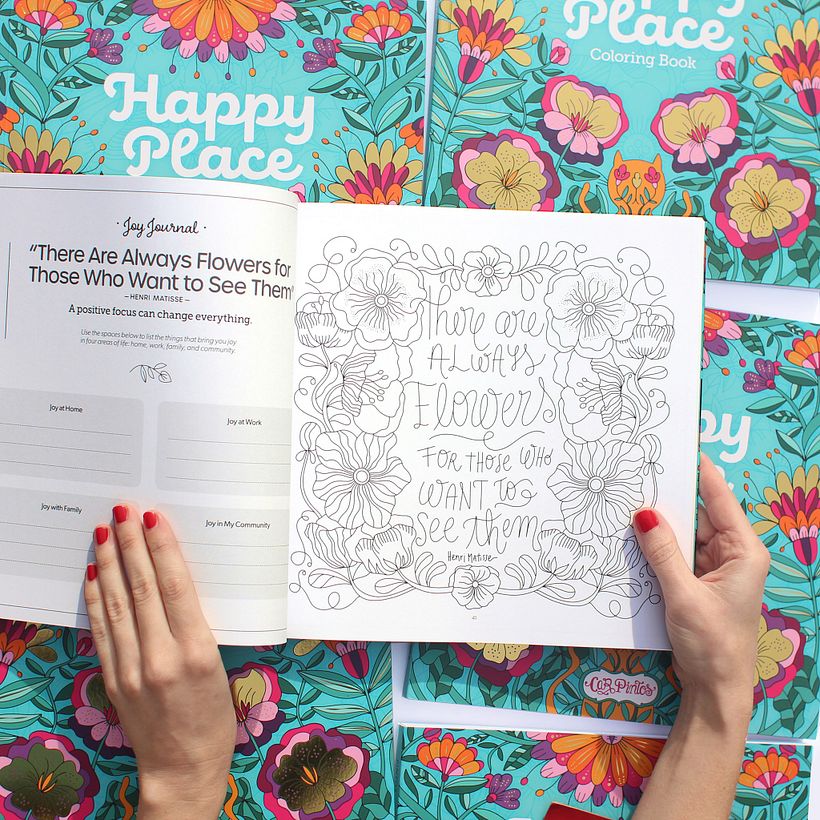 Happy
Place
Happy
Place
Coloring Book
· Joy Journal ·
"There Are Always Flowers for
Those Who Want to See Them"
— HENRI MATISSE —
A positive focus can change everything.
Use the spaces below to list the things that bring you joy
in four areas of life: home, work, family, and community.
Joy at Home
Joy at Work
Joy with Family
Joy in My Community
There are
ALWAYS
Flowers
FOR THOSE WHO
WANT TO
See them
Henri Matisse
Place
CAR PINTOS